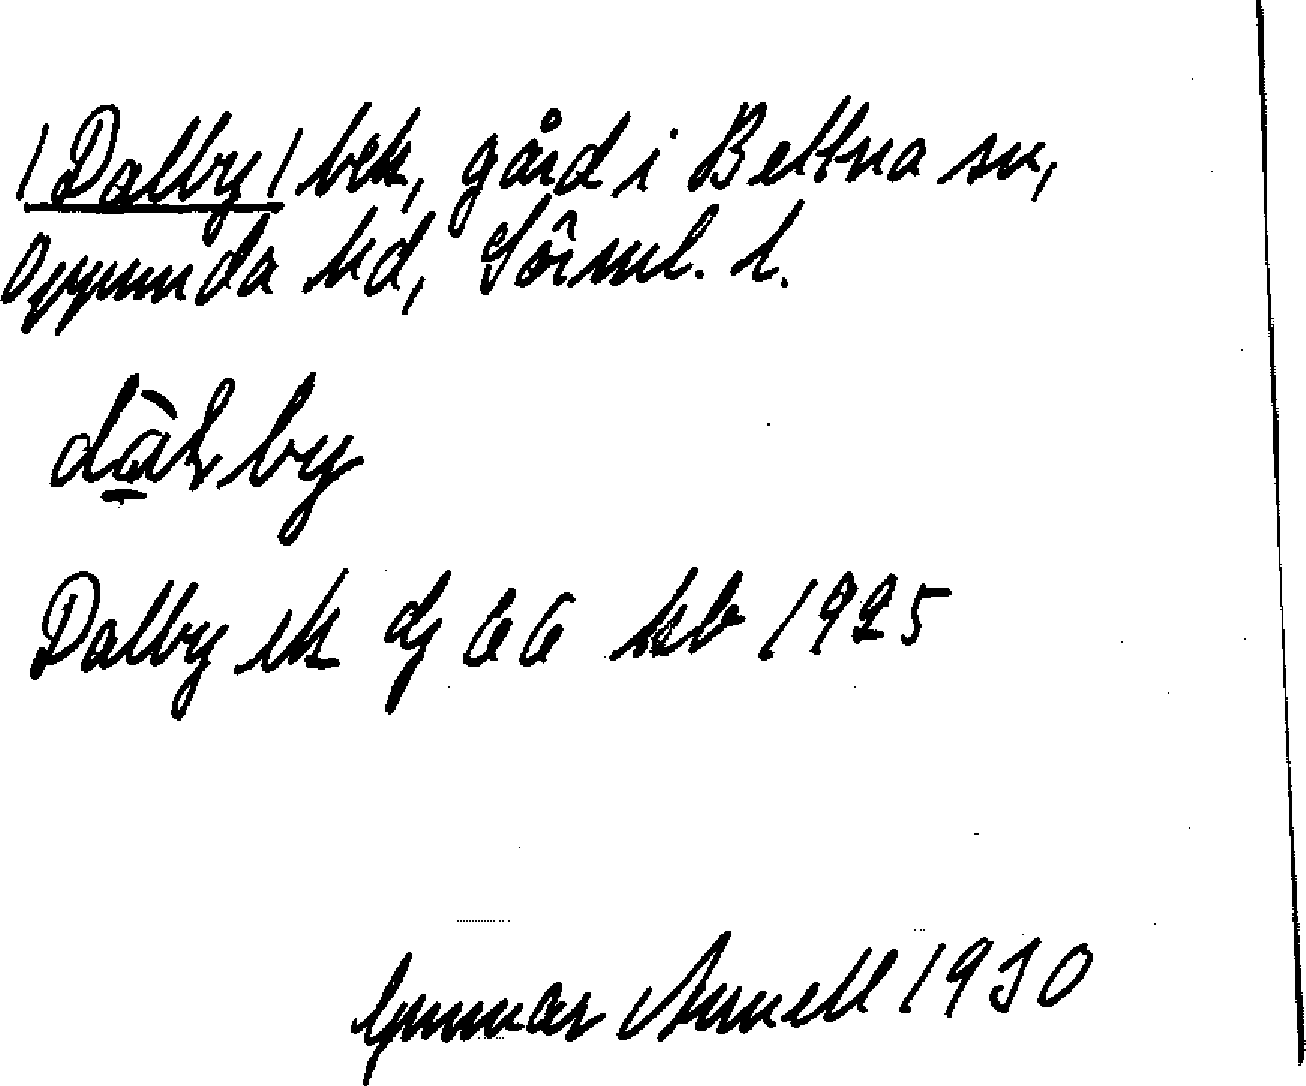 (Dalby) bek, gård i Bettna sn,
Oppunda hd, Sörml. l.
dàlby
Dalby ek
1925
Gunnar Arnell 1930